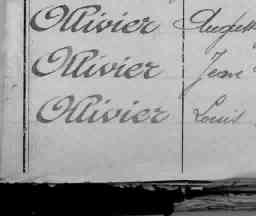 Ollivier
Ollivier Jean
Ollivier Louis